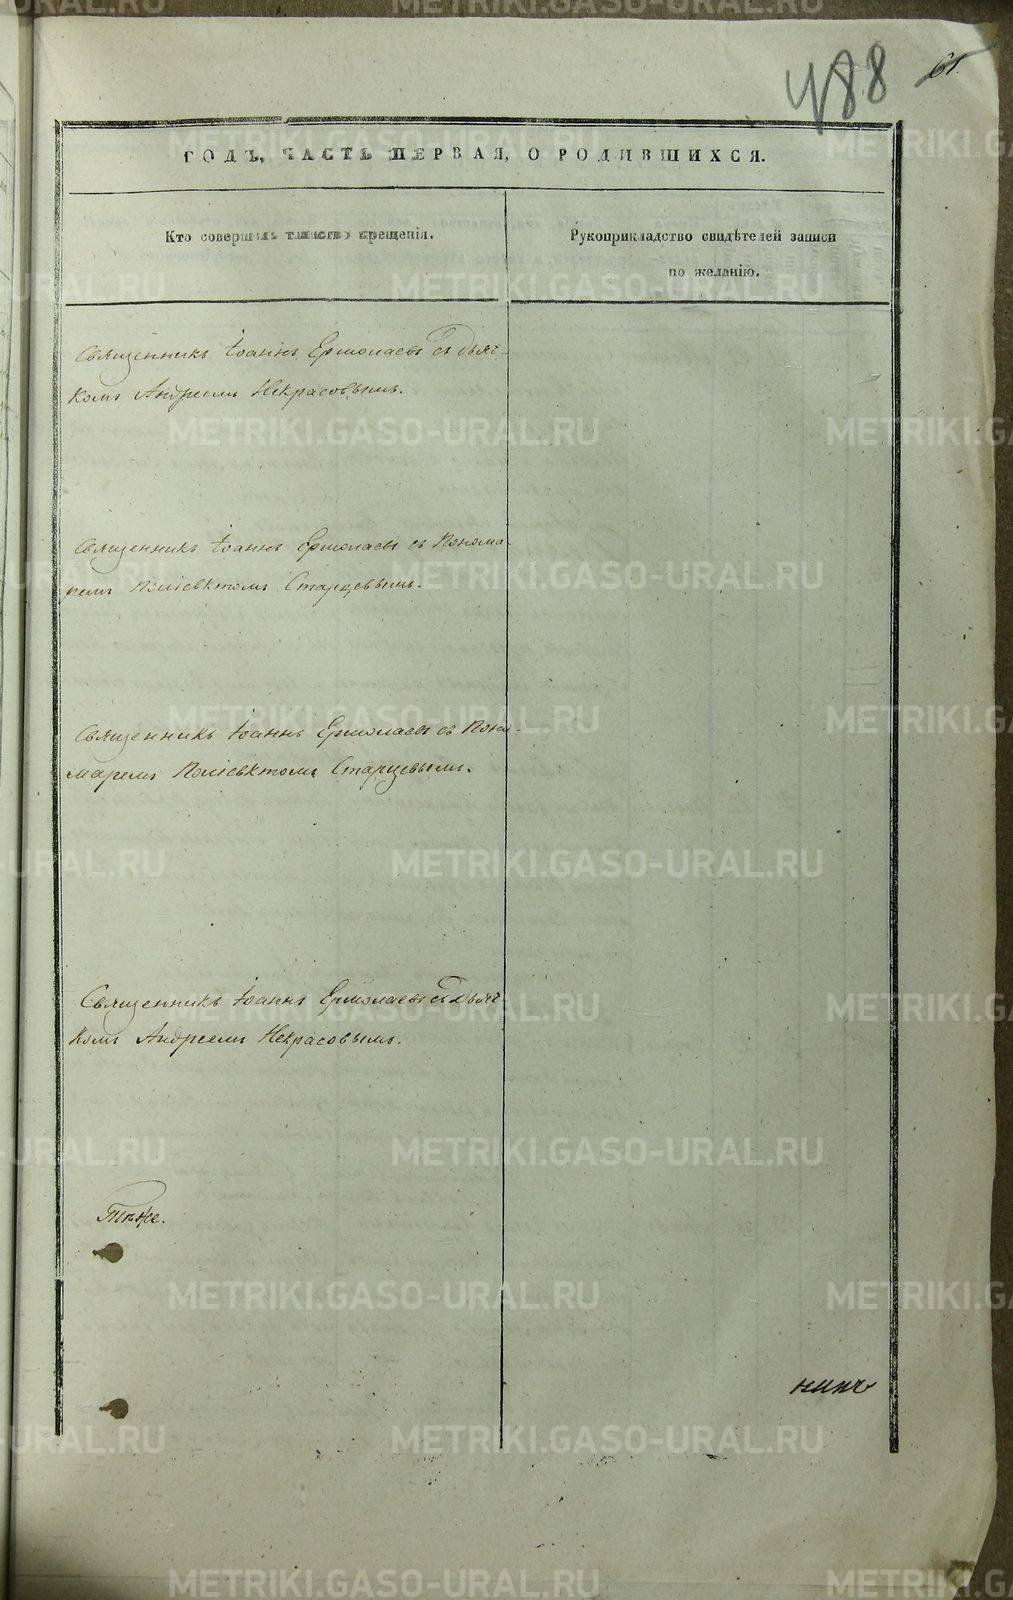 488 61.
ГОДЪ, ЧАСТЬ ПЕРВАЯ, О РОДИВШИХСЯ.
Кто совершилъ таинство крещенія.
Рукоприкладство свидѣтелей записи
по желанію.
Священникъ Іоаннъ Ермолаевъ съ дьяч-
комъ Андреемъ Некрасовымъ.
Священникъ Іоаннъ Ермолаевъ съ Понома-
ремъ Поліевктомъ Старцевымъ.
Священникъ Іоаннъ Ермолаевъ съ Поно-
маремъ Поліевктомъ Старцевымъ.
Священникъ Іоаннъ Ермолаевъ съ Дьяч-
комъ Андреемъ Некрасовымъ.
Тѣже.
METRIKI.GASO-URAL.RU